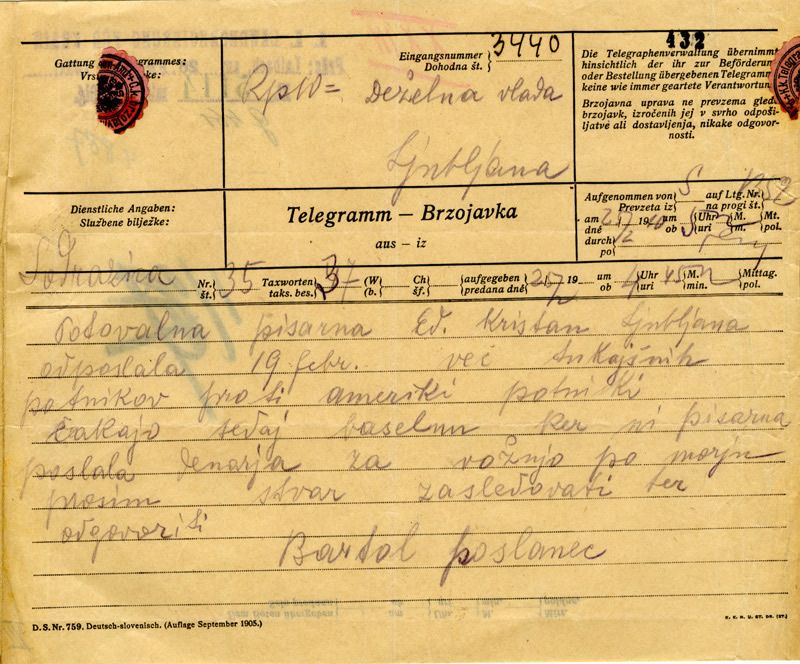 Gattung des Telegrammes:
Eingangsnummer
Dohodna št.
3440
132
Rp10= Deželna vlada
Ljubljana
Die Telegraphenverwaltung übernimmt
hinsichtlich der ihr zur Beförderung
oder Bestellung übergebenen Telegramme
keine wie immer geartete Verantwortung.
Brzojavna uprava ne prevzema glede
brzojavk, izročenih jej v svrho odpoši-
ljatve ali dostavljenja, nikake odgovor-
nosti.
Dienstliche Angaben:
Službene bilježke:
Telegramm – Brzojavka
aus – iz
Aufgenommen von S auf Ltg. Nr.
Prevzeta iz na progi št.
am 21/2 19 10 um 5 Uhr M. Mt.
dné ob uri m. pol.
durch
po
Sodražica Nr. št. 35 Taxworten taks. bes. 37 (W (b. Ch šf. aufgegeben predana dné 21/2 19 um ob 4 Uhr uri 45 M. min. n Mittag. pol.
Potovalna pisarna Ed. Kristan Ljubljana
odposlala 19 febr. več tukajšnih
potnikov proti ameriki potniki
čakajo sedaj baselnu ker ni pisarna
poslala denarja za vožnjo po morju
prosim stvar zasledovati ter
odgovoriti
Bartol poslanec
D. S. Nr. 759. Deutsch-slovenisch. (Auflage September 1905.)
K. K. H. U. ST. DR. (ST.)